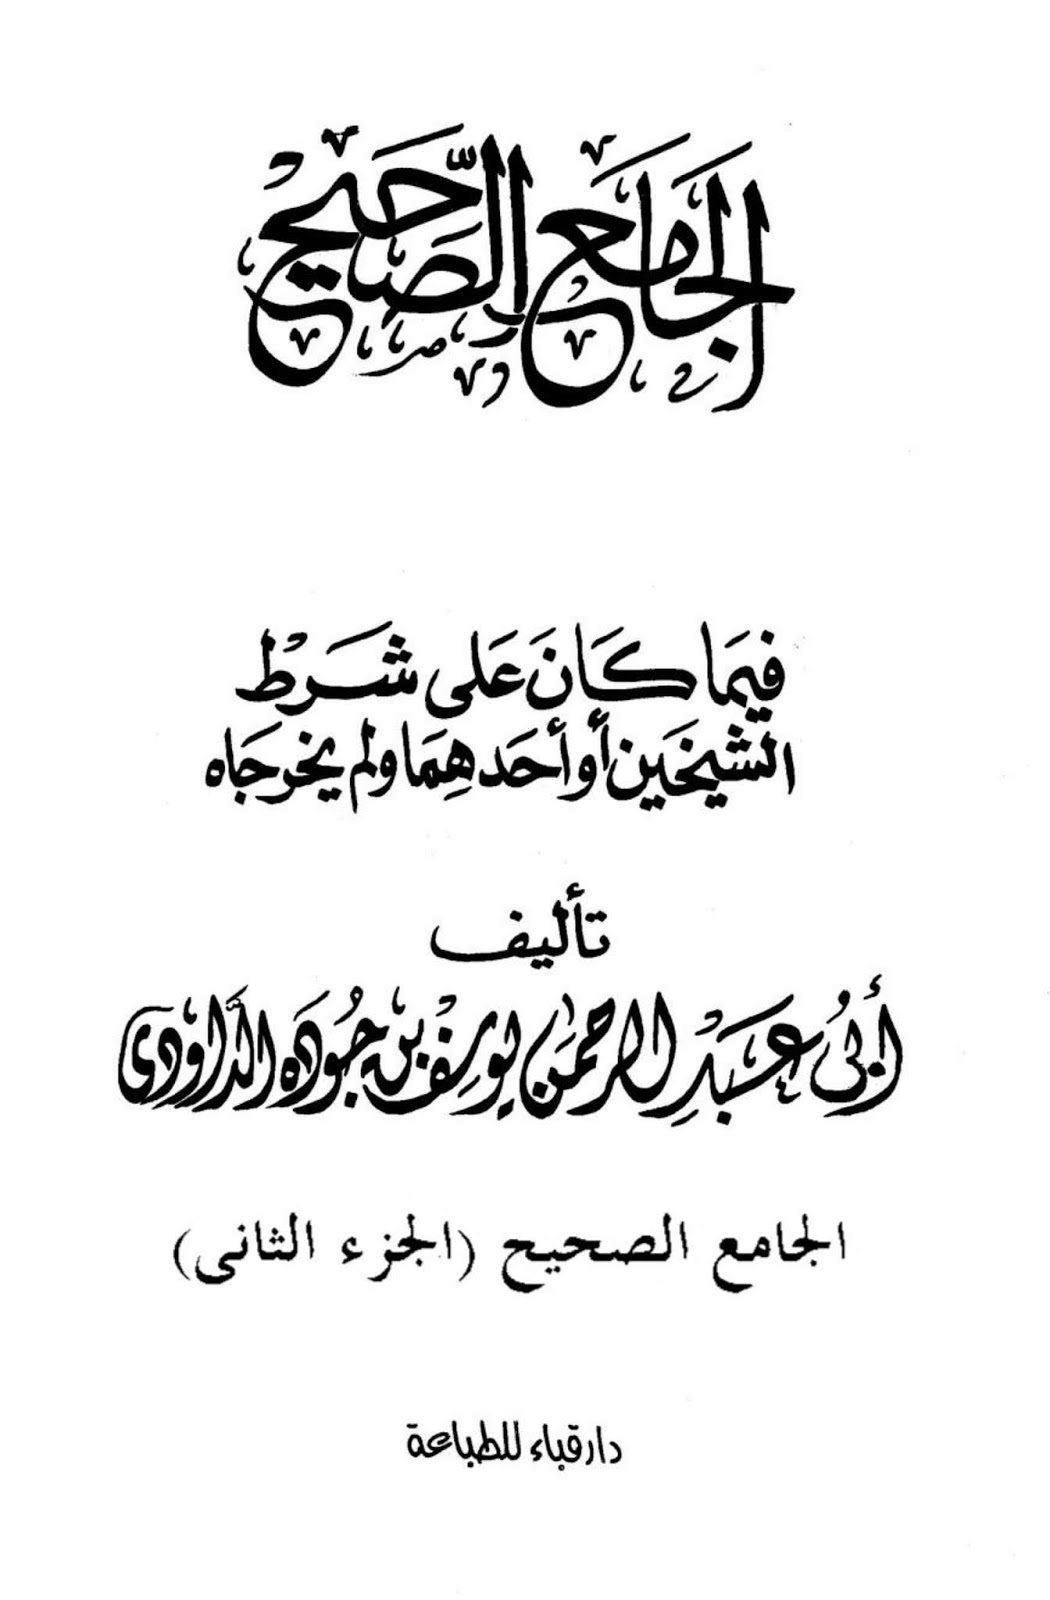 الجامع الصَّحيح
فيمَا كَانَ عَلى شَرْط
الشيخَين أو أحَدهِمَا ولم يخرجَاه
تأليف
أبي عَبْدِ الرحمن يوسف بن جُودَه الدَّاوُدي
الجامع الصحيح (الجزء الثانى)
دار قباء للطباعة